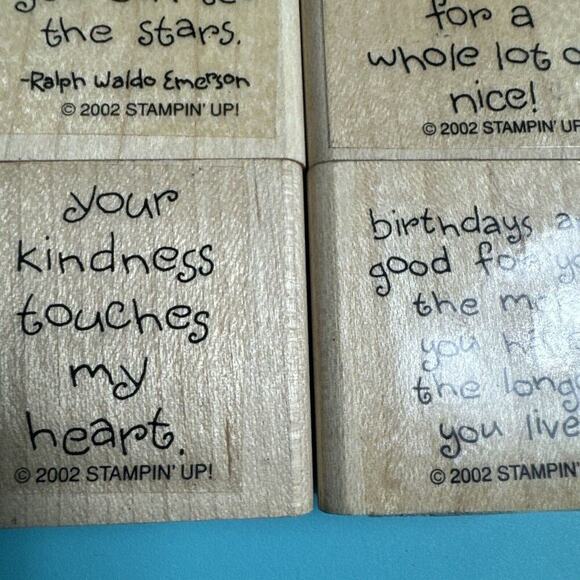 the stars.
-Ralph Waldo Emerson
© 2002 STAMPIN' UP!
for a
whole lot
nice!
© 2002 STAMPIN'
your
kindness
touches
my
heart.
© 2002 STAMPIN' UP!
birthdays
good
the
you
the
you live
© 2002 STAMPIN'